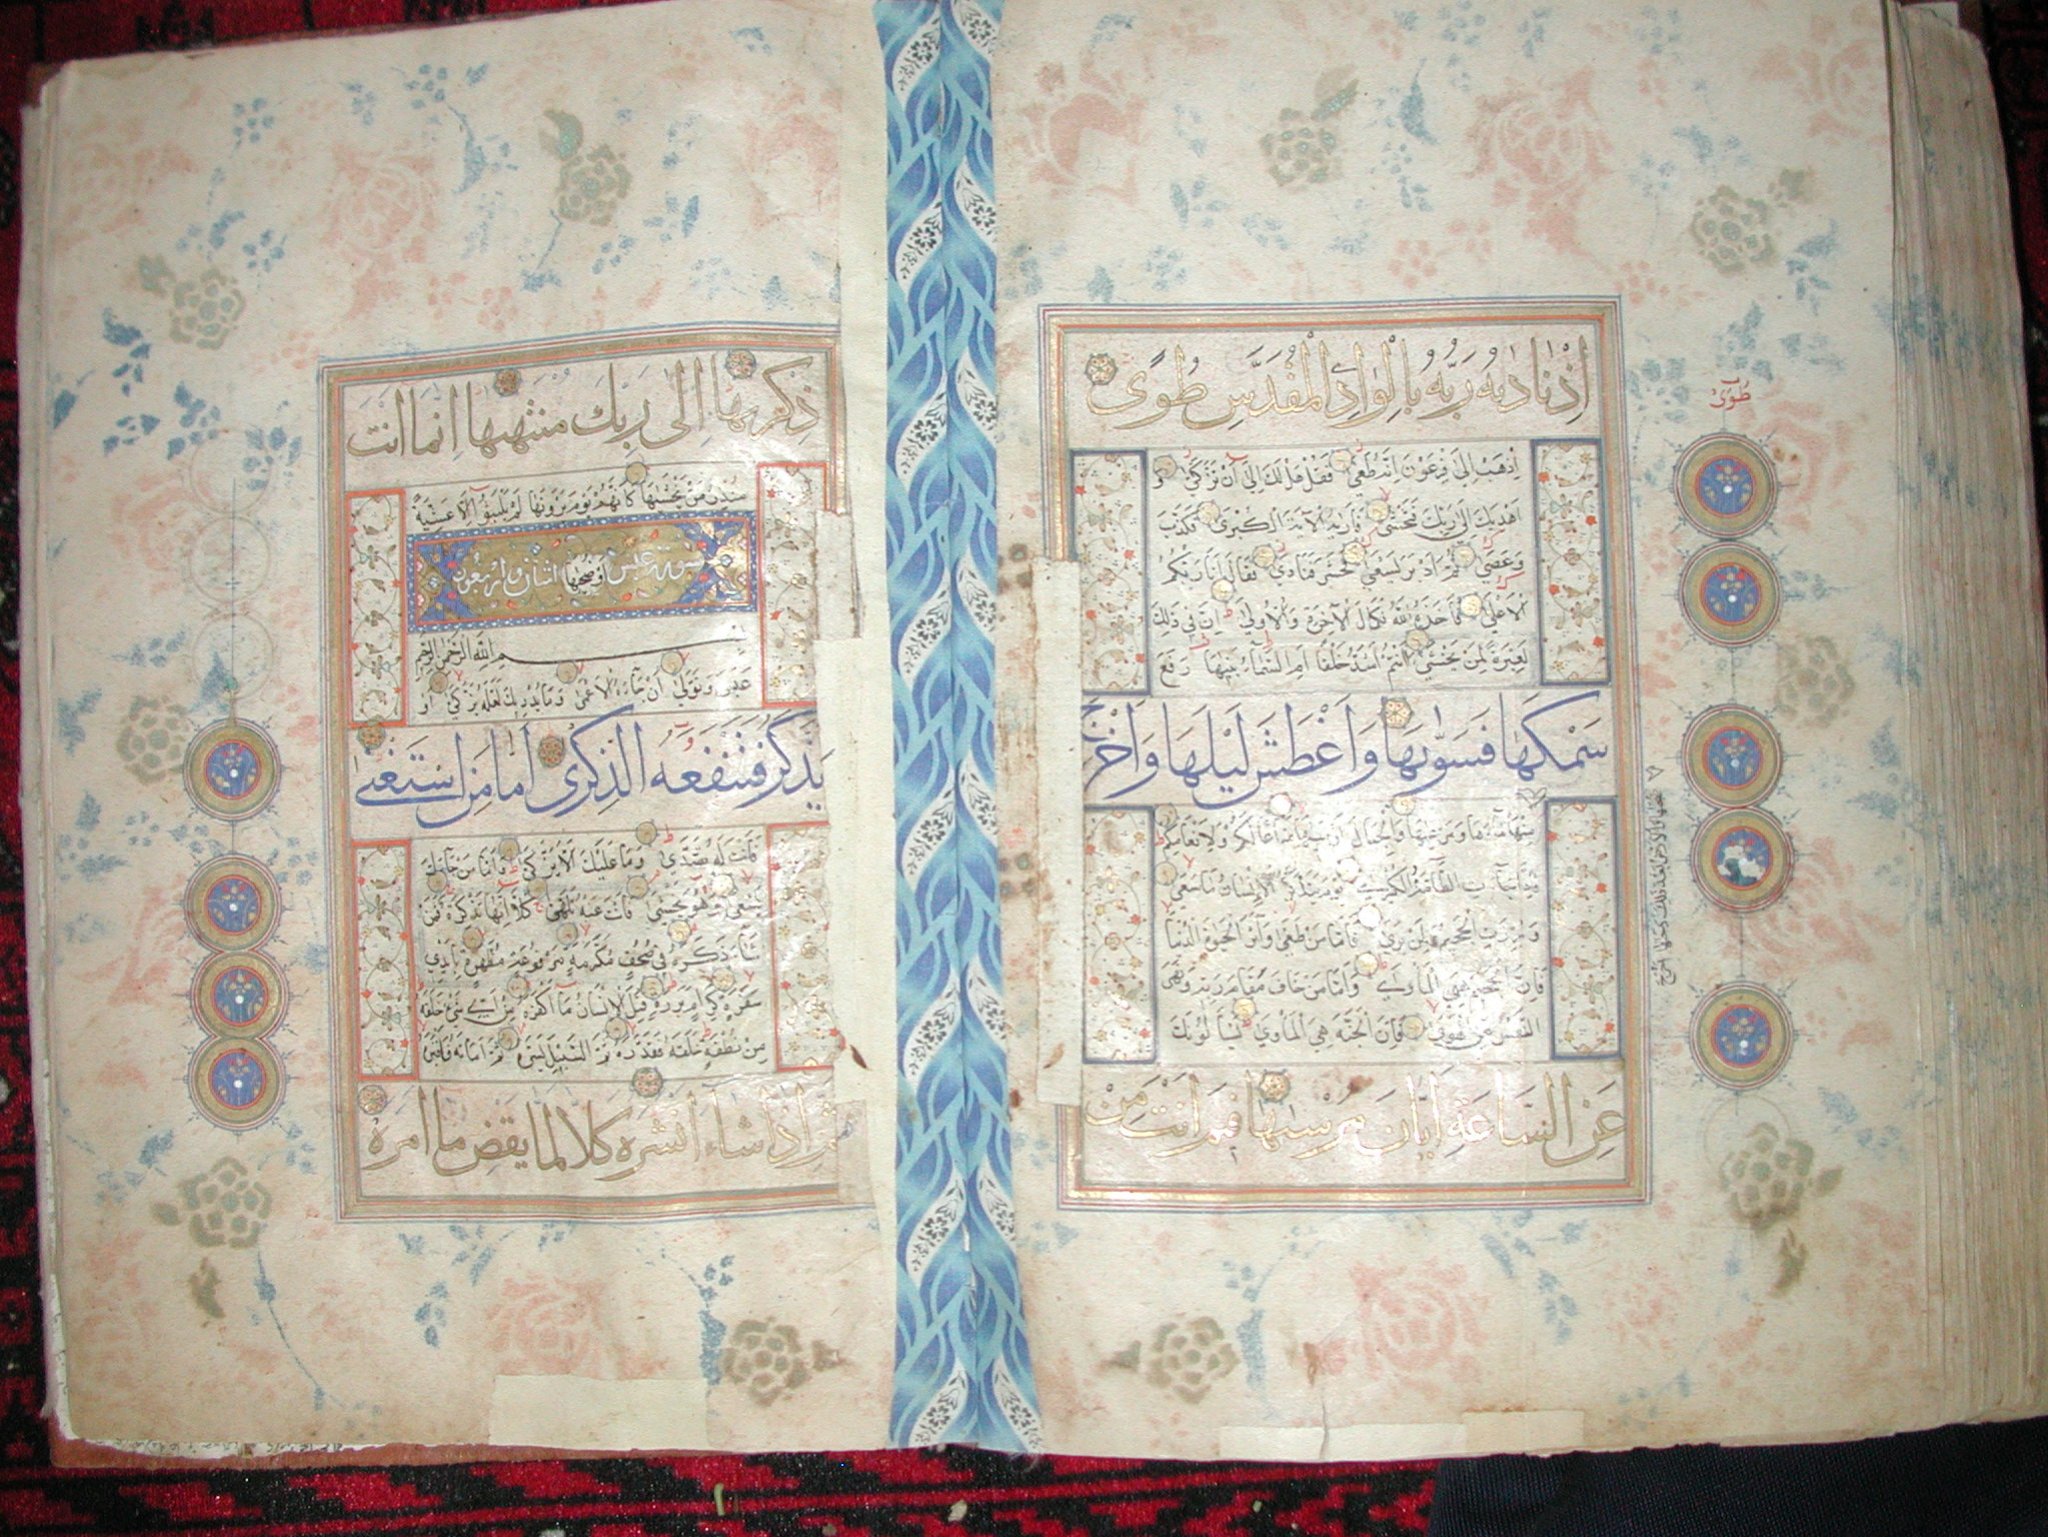 اذ نادىه ربه بالواد المقدس طوى
اذهب الى فرعون انه طغى فقل هل لك الى ان تزكى و
اهديك الى ربك فتخشى فاريه الآية الكبرى فكذب
وعصى ثم ادبر يسعى فحشر فنادى فقال انا ربكم
الاعلى فاخذه الله نكال الآخرة والاولى ان فى ذلك
لعبرة لمن يخشى ءانتم اشد خلقا ام السماء بنيها رفع
سمكها فسويها واغطش ليلها واخرج
منها ماءها ومرعيها والجبال ارسيها متاعا لكم ولانعامكم
فاذا جاءت الطامة الكبرى يوم يتذكر الانسان ما سعى
وبرزت الجحيم لمن يرى فاما من طغى وآثر الحيوة الدنيا
فان الجحيم هى المأوى واما من خاف مقام ربه ونهى
النفس عن الهوى فان الجنة هى المأوى يسألونك
عن الساعة ايان مرسيها فيم انت من
طوى
ضحيها والارض بعد ذلك دحيها اخرج
ذكريها الى ربك منتهيها انما انت
منذر من يخشيها كانهم يوم يرونها لم يلبثوا الا عشية
سورة عبس او ضحيها اثنان واربعون
بسم الله الرحمن الرحيم
عبس وتولى ان جاءه الاعمى وما يدريك لعله يزكى او
يذكر فتنفعه الذكرى اما من استغنى
فانت له تصدى وما عليك الا يزكى واما من جاءك
يسعى وهو يخشى فانت عنه تلهى كلا انها تذكرة فمن
شاء ذكره فى صحف مكرمة مرفوعة مطهرة بايدى
سفرة كرام بررة قتل الانسان ما اكفره من اى شىء خلقه
من نطفة خلقه فقدره ثم السبيل يسره ثم اماته فاقبره
ثم اذا شاء انشره كلا لما يقض ما امره